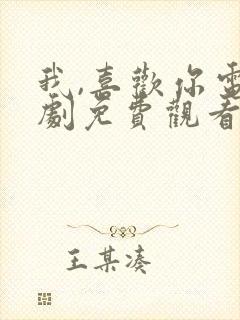 我,喜歡你電
劇免費觀看
王某湊